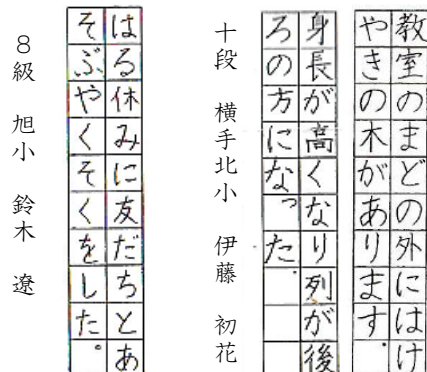 教室のまどの外にはけ
やきの木があります。
身長が高くなり列が後
ろの方になった。
十段 横手北小 伊藤 初花
はる休みに友だちとあ
そぶやくそくをした。
8級 旭小 鈴木 遼